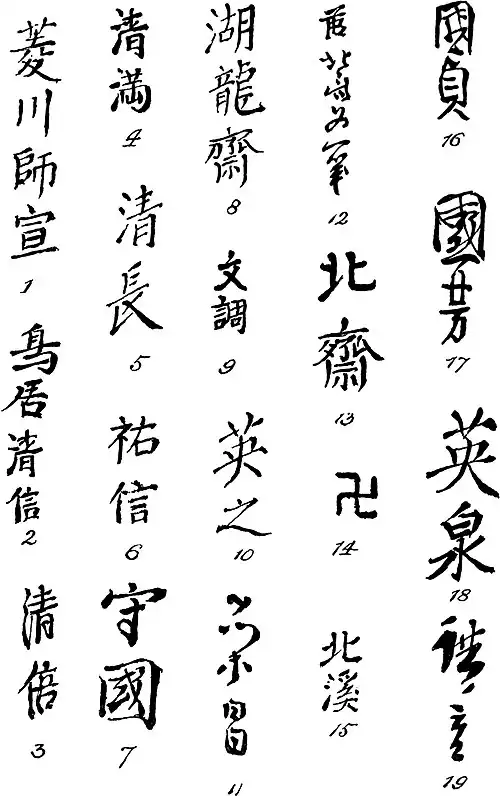 菱川師宣
1
鳥居清信
2
清倍
3
清満
4
清長
5
祐信
6
守國
7
湖龍齋
8
文調
9
英之
10
11
12
北齋
13
卍
14
北溪
15
國貞
16
國芳
17
英泉
18
19